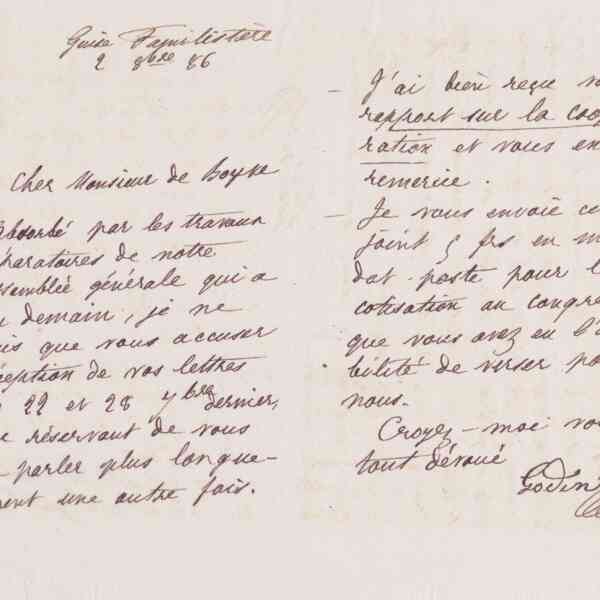 Guise Familistère
2 8bre 86
Cher Monsieur de Boyve
Absorbé par les travaux
paratoires de notre
semblée générale qui a
demain, je ne
is que vous accuser
ception de vos lettres
22 et 28 7bre dernier,
e réservant de vous
parler plus longue-
ment une autre fois.
— J'ai bien reçu vo
rapport sur la coop
ration et vous en
remercie.
— Je vous envoie ci
joint 5 frs en m
dat-poste pour l
cotisation au congrè
que vous avez eu l'
bilité de verser po
nous.
Croyez-moi vo
tout dévoué
Godin